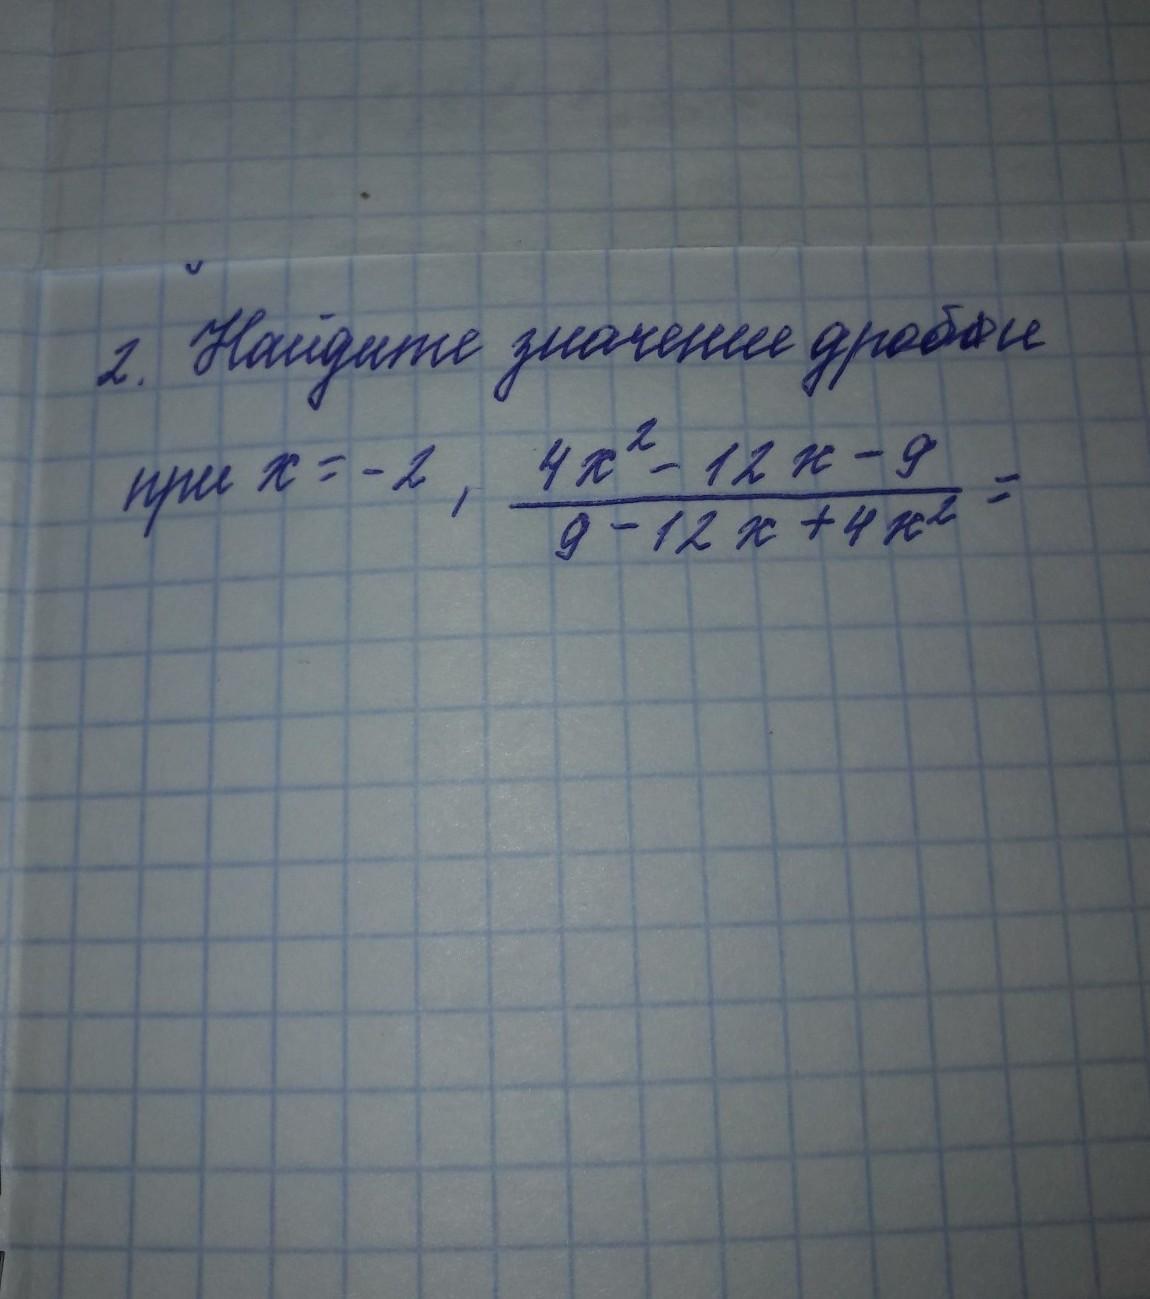 2. Найдите значение дроби
при x = -2, \frac{4x^2 - 12x - 9}{9 - 12x + 4x^2} =